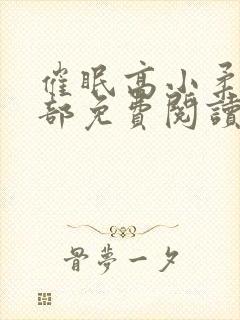 催眠高小柔
部免費閱讀
骨夢一夕